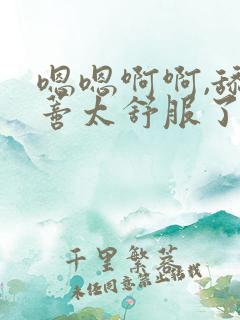 嗯嗯啊啊,舔
蓍太舒服了
千里繁落
未经同意禁止搭我